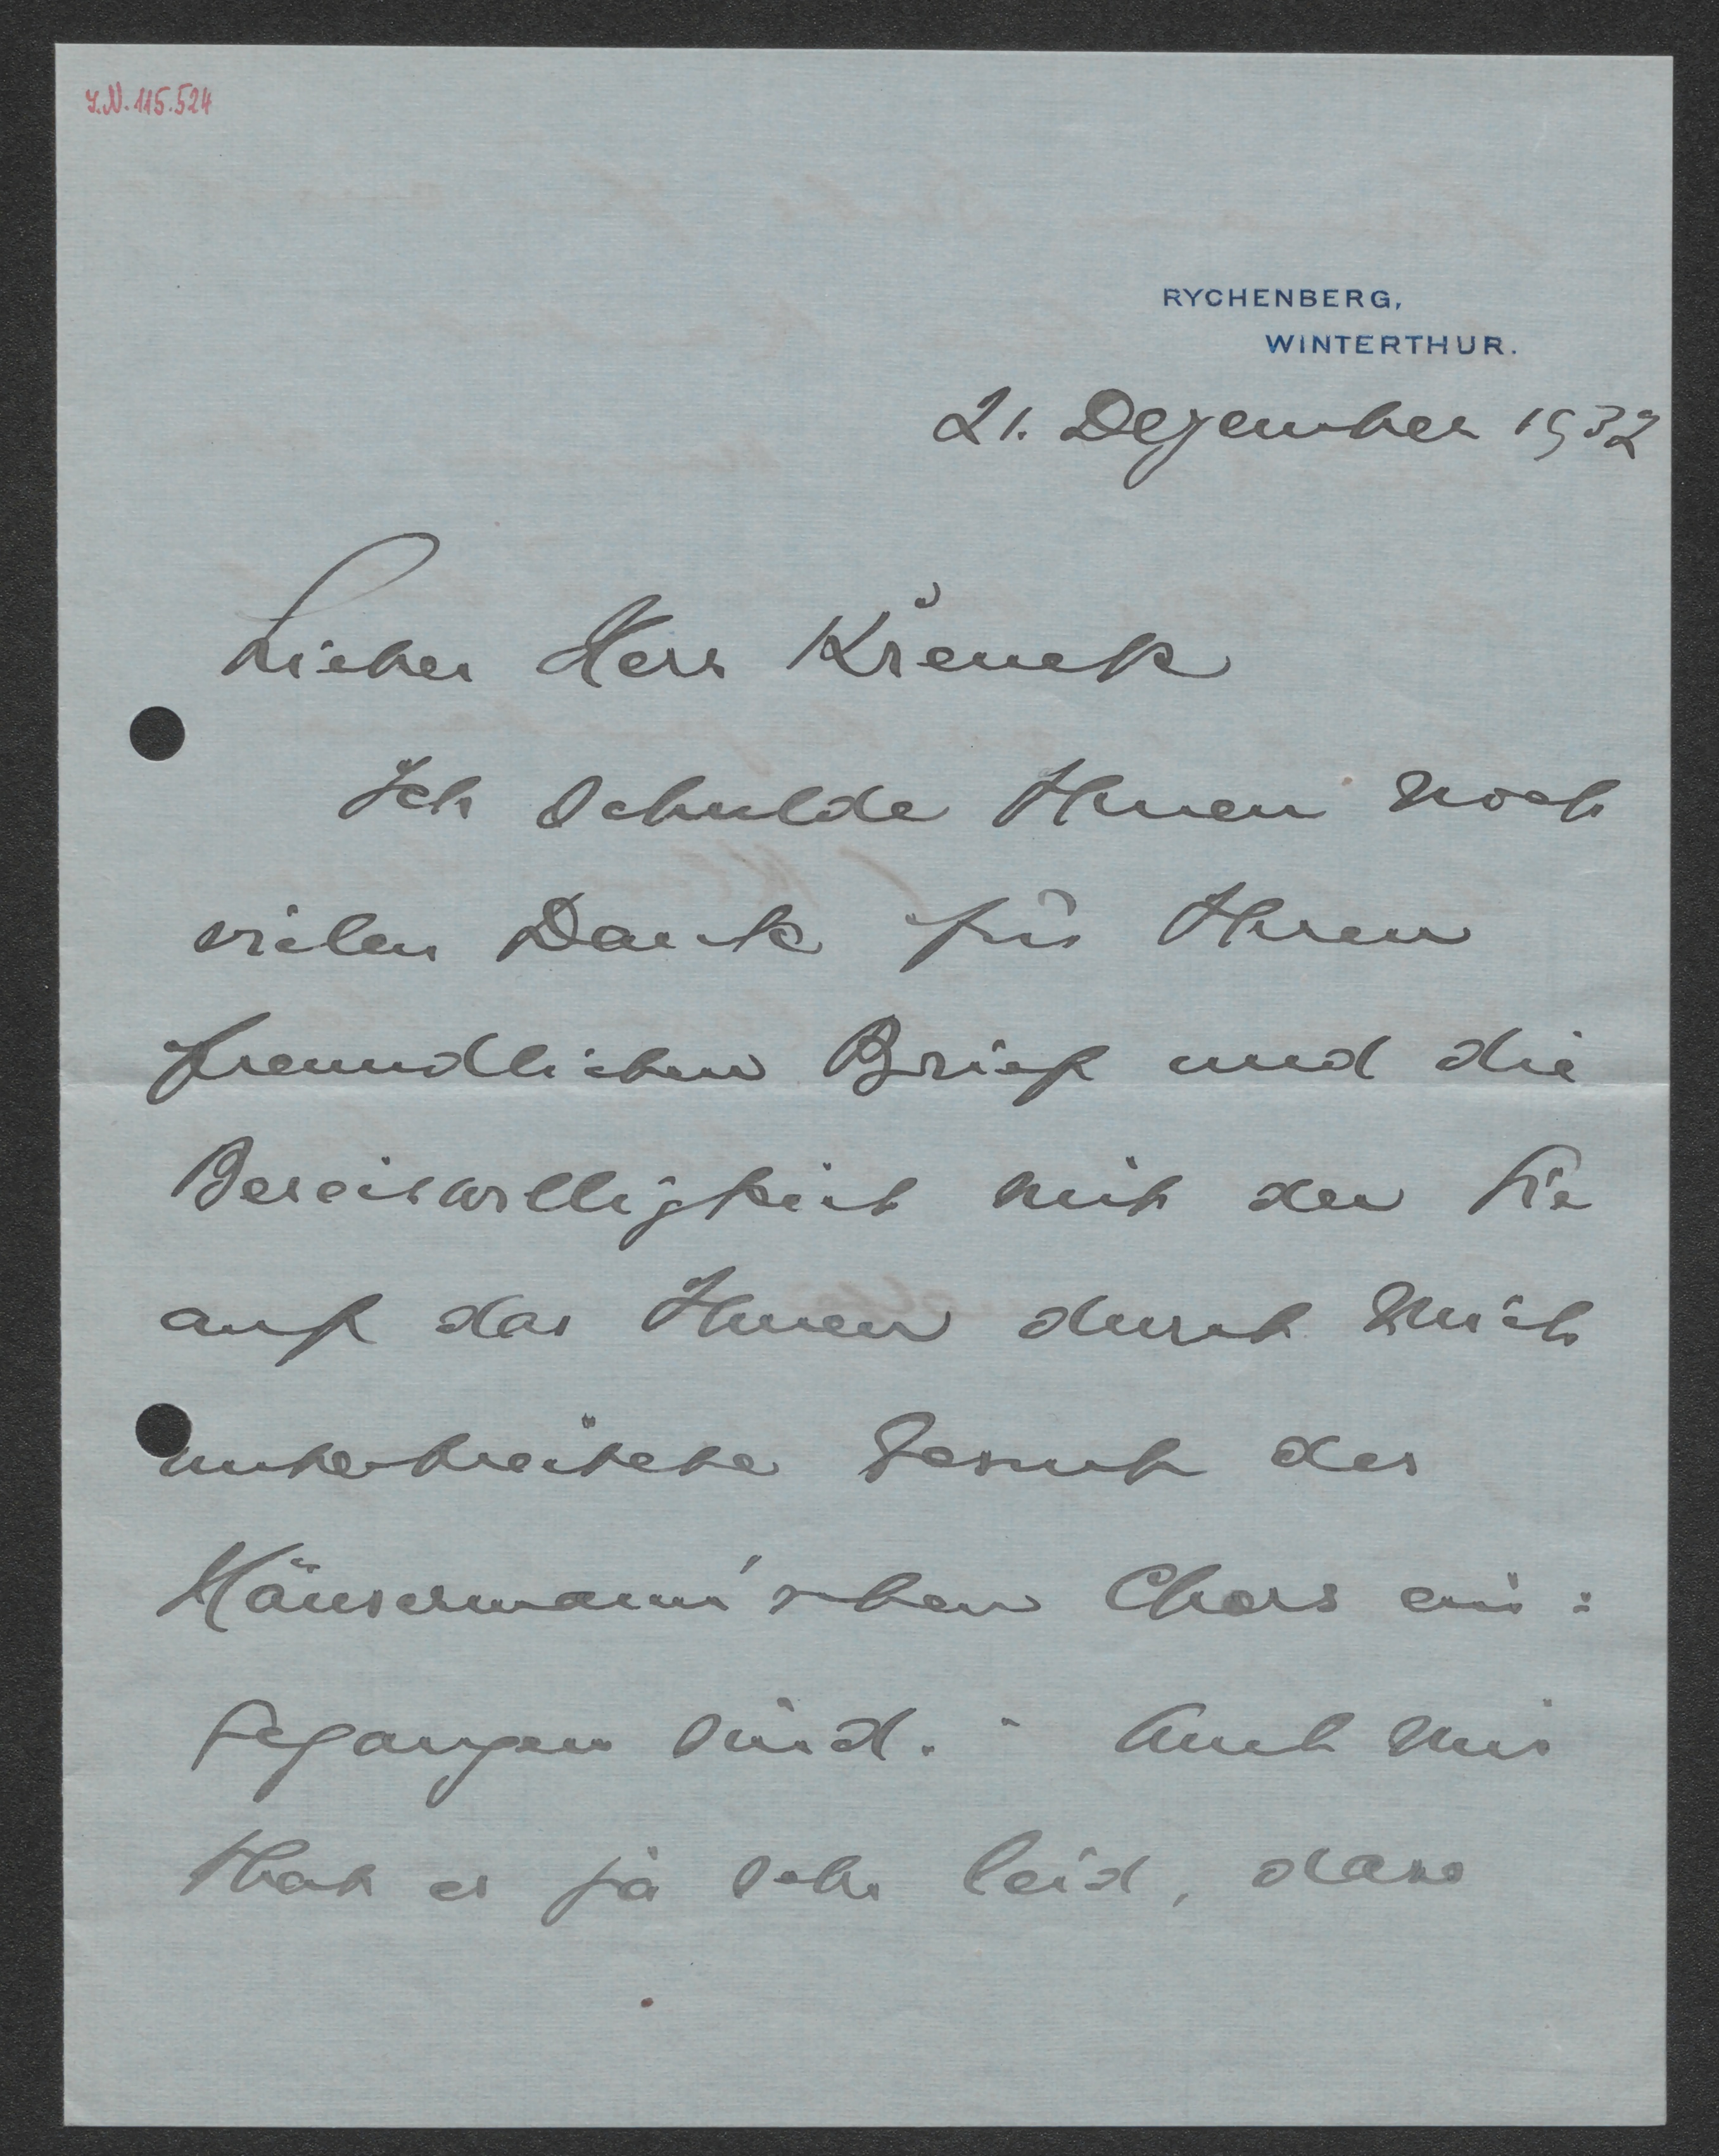 I.N. 115.524
RYCHENBERG,
WINTERTHUR.
21. Dezember 1932
Lieber Herr Křenek
Ich schulde Ihnen noch
vielen Dank für Ihren
freundlichen Brief und die
Bereitwilligkeit mit der Sie
auf das Ihnen durch mich
unterbreitete Gesuch des
Häusermann'schen Chors ein:
gegangen sind. - Auch mir
that es ja sehr leid, dass